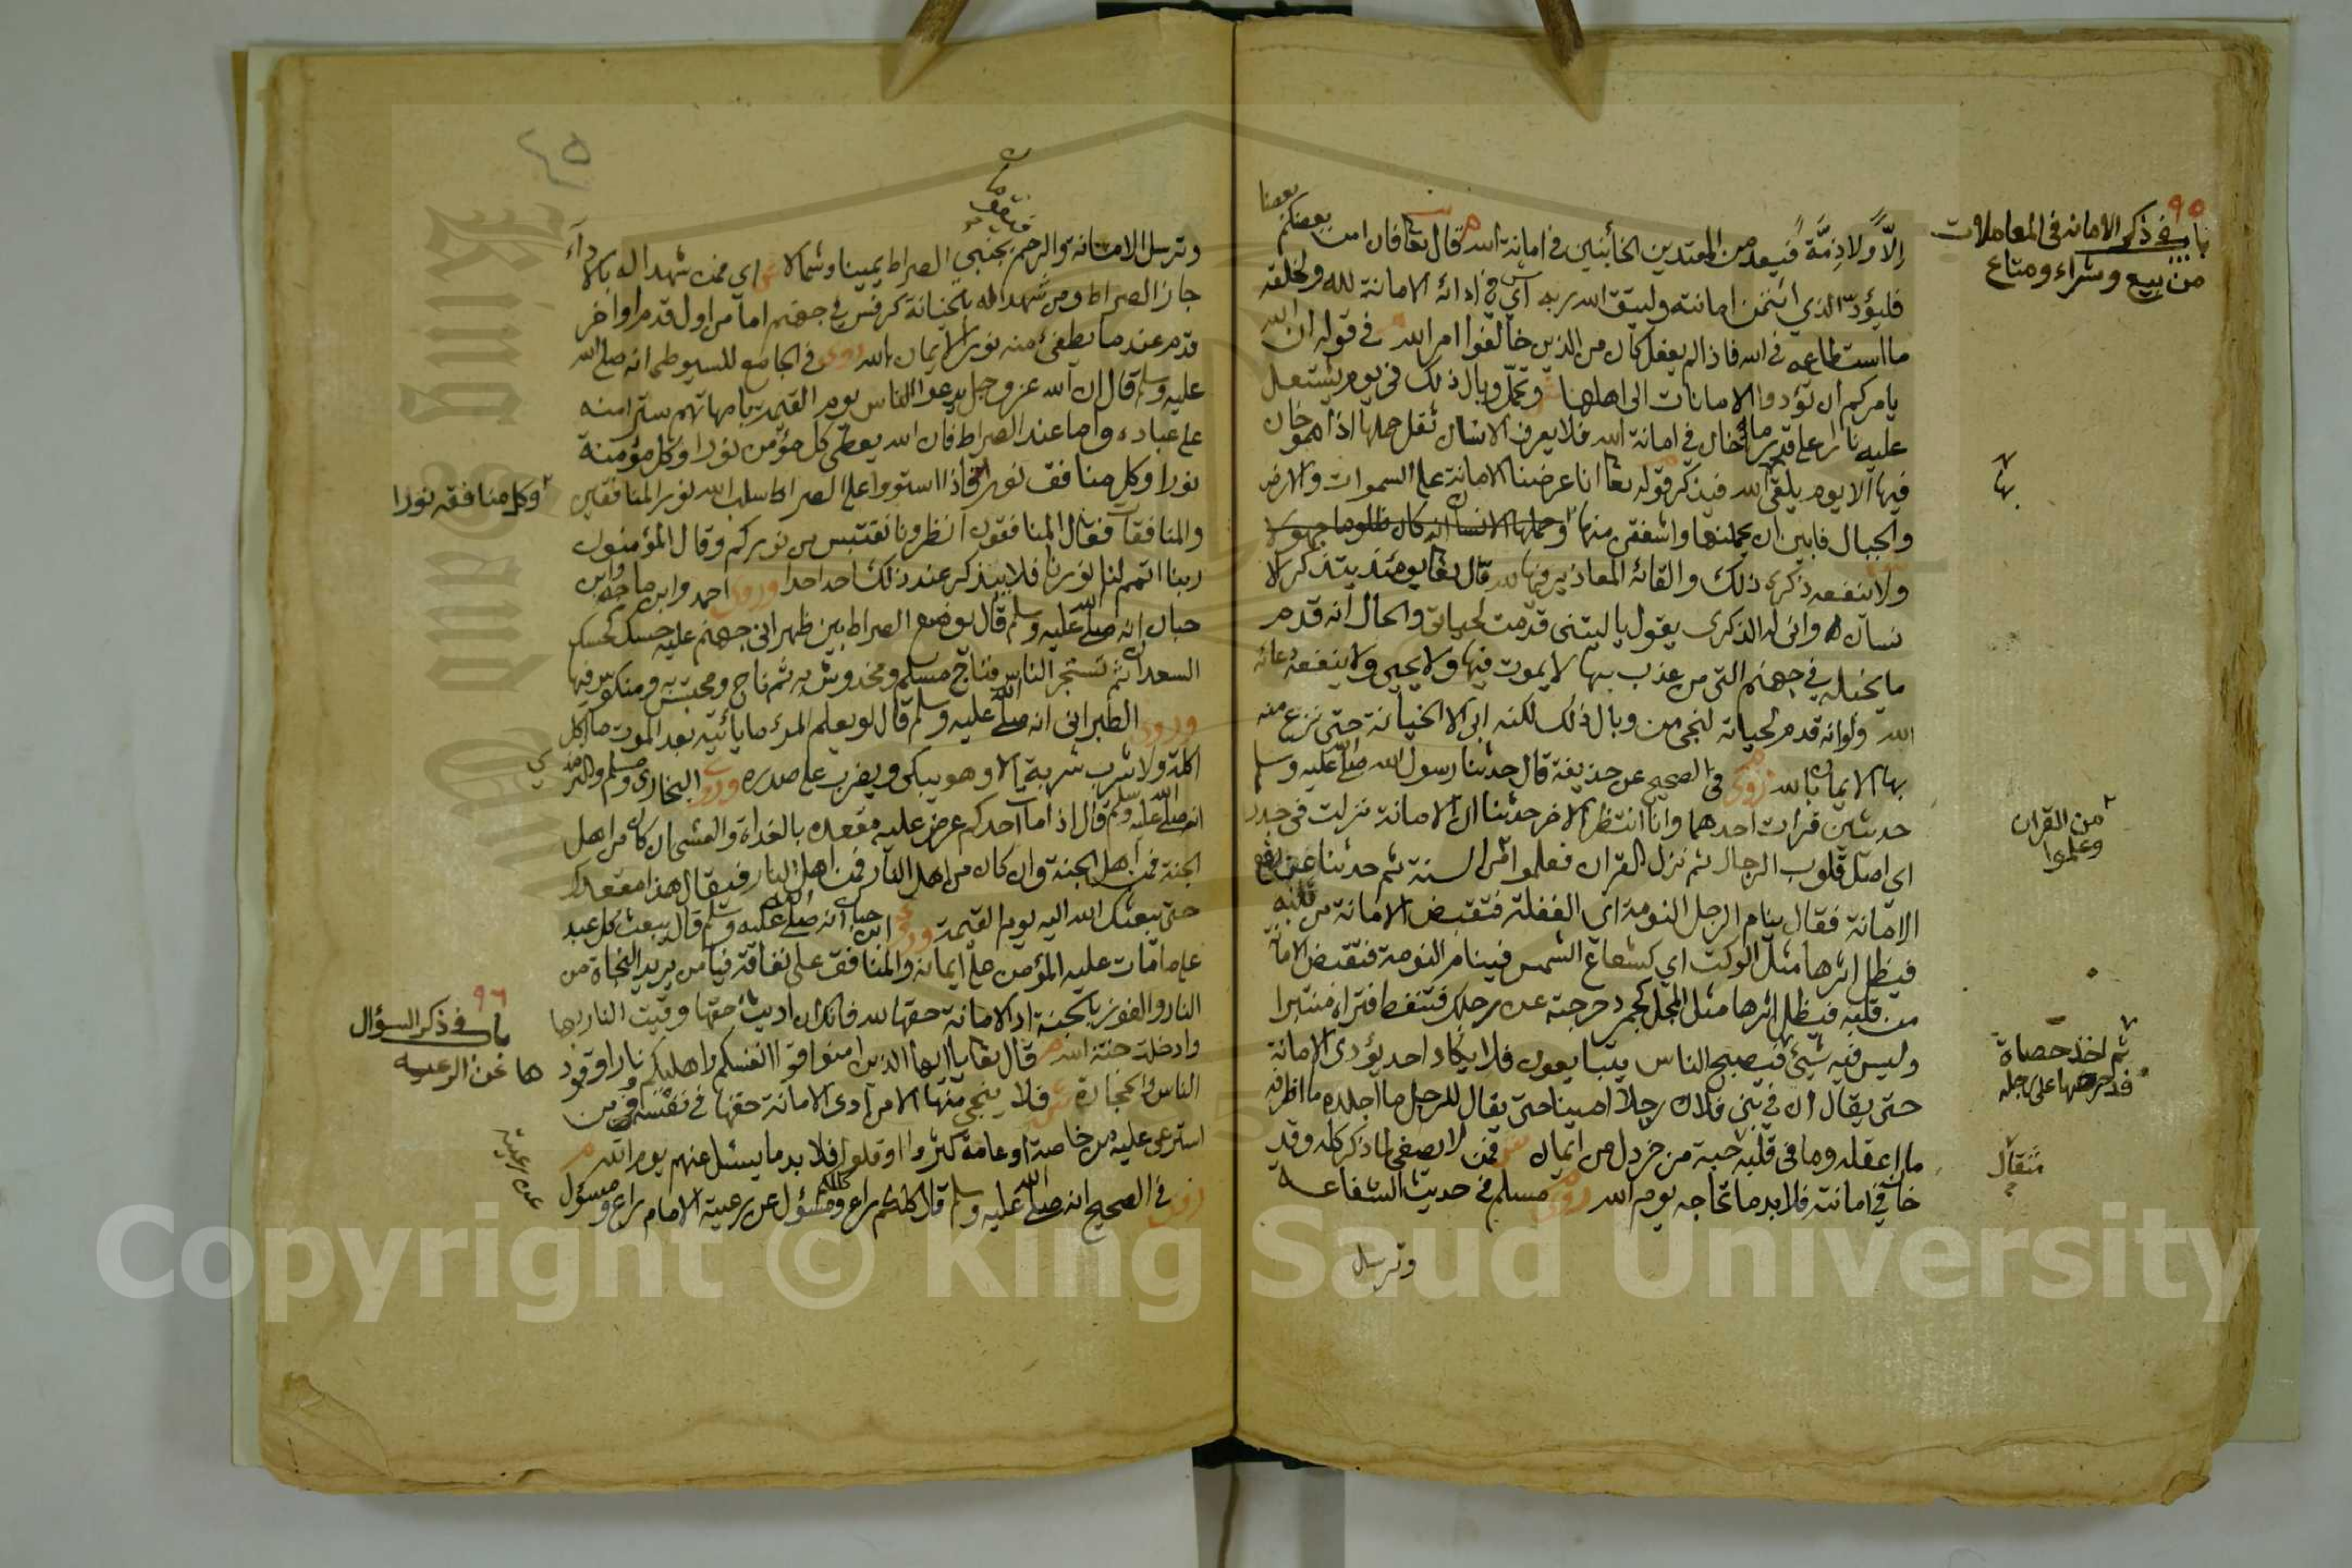 ٩٥
باب في ذكر الامانه في المعاملات
من بيع وشراء ومتاع
إلاًّ ولا ذِمَّةً فيُبعد من المعتدين الخائنين في امانة الله قال تعا فان امن بعضكم بعضا
فليؤدّ الذي ائتمن امانته وليتق الله ربه اي في ادائه الامانة لله ولخلقه
ما استطاعه في الله فاذا لم يفعل كان من الذين خالفوا امر الله في قوله ان الله
يامركم ان تؤدوا الامانات الى اهلها وتحمّل وبال ذلك في يوم يشتعل
عليه نارا على قدر ما خان في امانة الله فلا يعرف الانسان ثقل حملها اذا هو خان
فيها الا يوم يلقى الله فيذكر قوله تعا انا عرضنا الامانة على السموات والارض
والجبال فابين ان يحملنها واشفقن منها وحملها الانسان انه كان ظلوما جهولا
ولا تنفعه ذكرى ذلك والقائه المعاذير فيها لله قال تعا يومئذ يتذكر الا
نسان وانى له الذكرى يقول يا ليتنى قدّمت لحياتى والحال انه قدم
ما يخبله في جهنم التى من عذب بها لا يموت فيها ولا يحيى ولا ينفعه دعائه
الله ولو انه قدم لحياته لنجى من وبال ذلك لكنه ابى الا الخيانة حتى نزع منه
بها الايمان بالله روى في الصحيح عن حذيفة قال حدثنا رسول الله صلى الله عليه وسلم
حديثين قد رات احدهما وانا انتظر الاخر حدثنا ان الامانة نزلت في جدر
اي اصل قلوب الرجال ثم نزل القران فعلموا من السنة ثم حدثنا عن رفع
من القران
وعلموا
الامانة فقال ينام الرجل النومة اى الغفلة فتقبض الامانة من قلبه
فيظل اثرها مثل الوكت اي كشعاع الشمس فينام النومة فتقبض الامانة
من قلبه فيظل اثرها مثل المجل كجمر دحرجته على رجلك فتنفط فتراه منتبرا
وليس فيه شيئ فيصبح الناس يتبايعون فلا يكاد احد يؤدى الامانة
ثم اخذ حصاة
فدحرجها على رجله
حتى يقال ان في بنى فلان رجلا امينا حتى يقال للرجل ما اجلده ما اظرفه
ما اعقله وما في قلبه حبة من خردل من ايمان فمن لا يصغى لما ذكر كله وقد
مثقال
خان في امانته فلا بد ما تحاجه يوم الله روى مسلم في حديث الشفاعة
وترسل
٤٥
وترسل الامانة والرحم بجنبي الصراط يمينا وشمالا اي فمن شهدا له بالاداء
جاز الصراط ومن شهدا له بالخيانة كرفس في جهنم اما من اول قدم او اخر
قدم عند ما يطفئ منه نور الايمان بالله روى في الجامع للسيوطى انه صلى الله
عليه وسلم قال ان الله عز وجل يدعوا الناس يوم القيمة بامهاتهم سترا منه
على عباده واما عند الصراط فان الله يعطى كل مؤمن نورا وكل مؤمنة
نورا وكل منافق نورا فاذا استووا على الصراط سلب الله نور المنافقين
وكل منافقه نورا
والمنافقات فقال المنافقون انظرونا نقتبس من نوركم وقال المؤمنون
ربنا اتمم لنا نورنا فلا يذكر عند ذلك احد احدا وروى احمد وابن ماجه وابن
حبان انه صلى الله عليه وسلم قال يوضع الصراط بين ظهرانى جهنم عليه حسك كحسك
السعدان ثم تستجر الناس فناج مسلم ومخدوش به ثم ناج ومحتبس به ومنكوس فيها
وروى الطبرانى انه صلى الله عليه وسلم قال لو يعلم المرء ما يأتيه بعد الموت ما اكل
اكلة ولا شرب شربة الا وهو يبكى ويضرب على صدره وروى البخارى ومسلم والترمذى
انه صلى الله عليه وسلم قال اذا مات احدكم عرض عليه مقعده بالغداة والعشى ان كان من اهل
الجنة فمن اهل الجنة وان كان من اهل النار فمن اهل النار فيقال هذا مقعدك
حتى يبعثك الله اليه يوم القيمة وروى ابن حبان انه صلى الله عليه وسلم قال يبعث كل عبد
على ما مات عليه المؤمن على ايمانه والمنافق على نفاقه فيا من يريد النجاة من
النار والفوز بالجنة اد الامانة حقها لله فانك ان اديت حقها وقيت النار بها
٩٦
باب في ذكر السؤال
ها عن الرعيه
وادخلت جنة الله قال تعا يا ايها الذين امنوا قوا انفسكم واهليكم نارا وقود
الناس والحجارة فلا ينجى منها الا من ادى الامانة حقها في نفسه وفي من
استرعى عليه من خاصة او عامة كثروا او قلوا فلا بد ما يسئل عنهم يوم الله
روى في الصحيح انه صلى الله عليه وسلم قال كلكم راع وكلكم مسؤل عن رعيته الامام راع ومسؤل
عن رعيته
Copyright © King Saud University